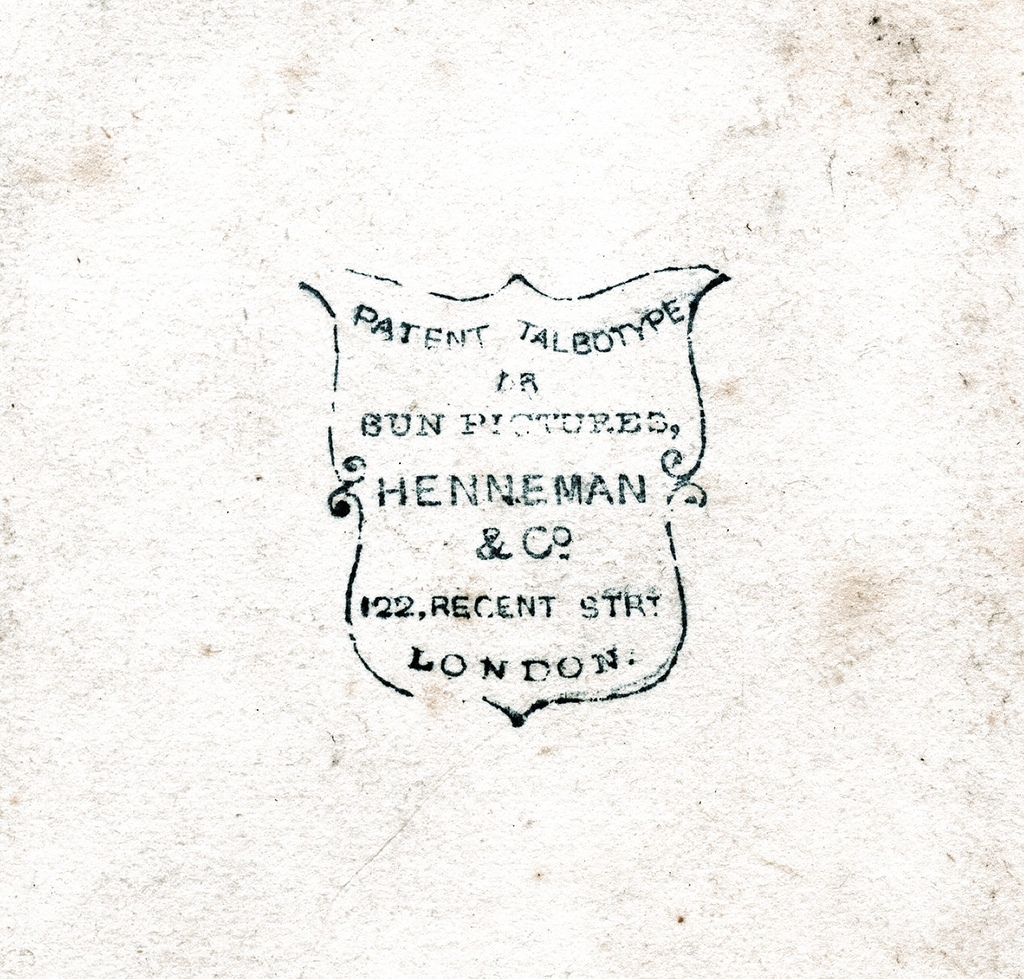 PATENT TALBOTYPE
OR
SUN PICTURES,
HENNEMAN
& Co
122, REGENT STRT
LONDON.